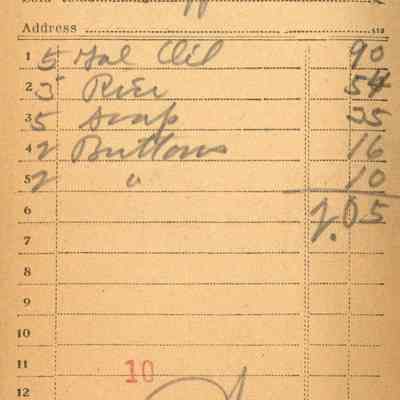 Address
1 5 Gal Oil 90
2 Rice 54
3 5 Soap 35
4 2 Buttons 16
5 2 " 10
6 2.05
7
8
9
10
11 10
12